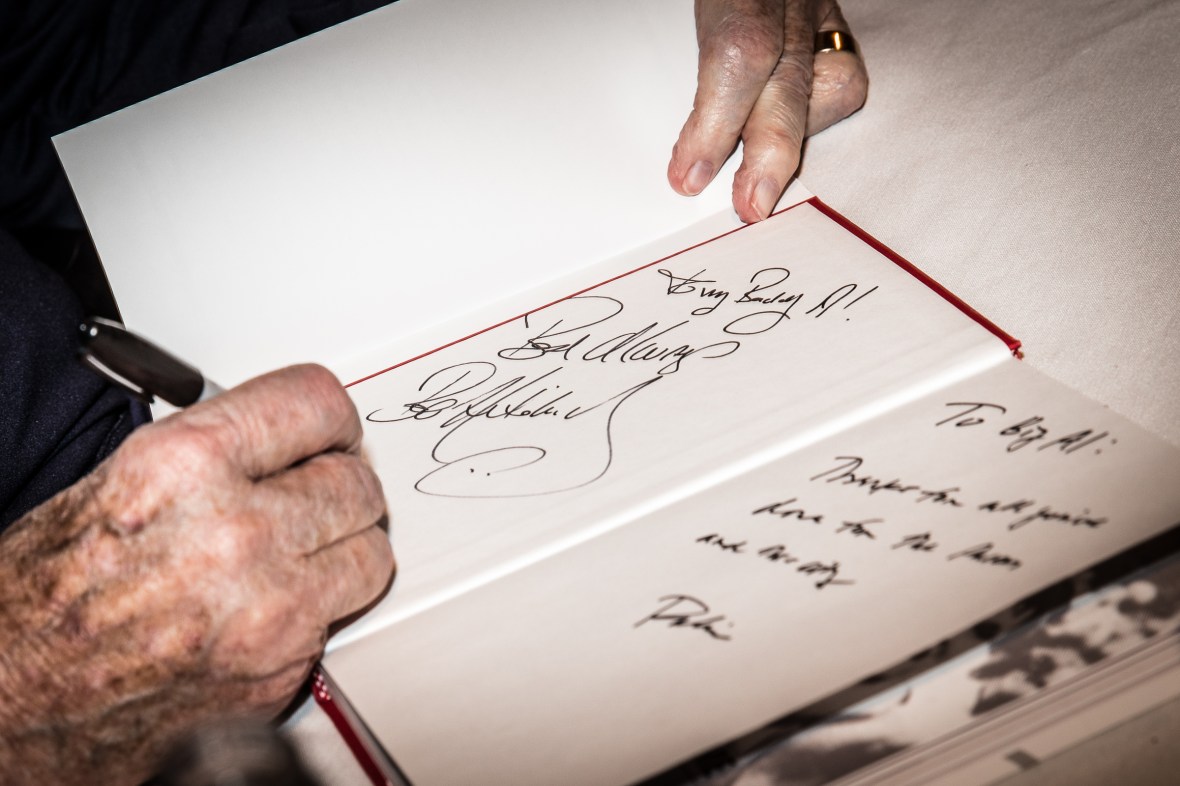 To my Buddy Al!
Best Always
To Big Al:
Thanks for all you've
done for the
and our city